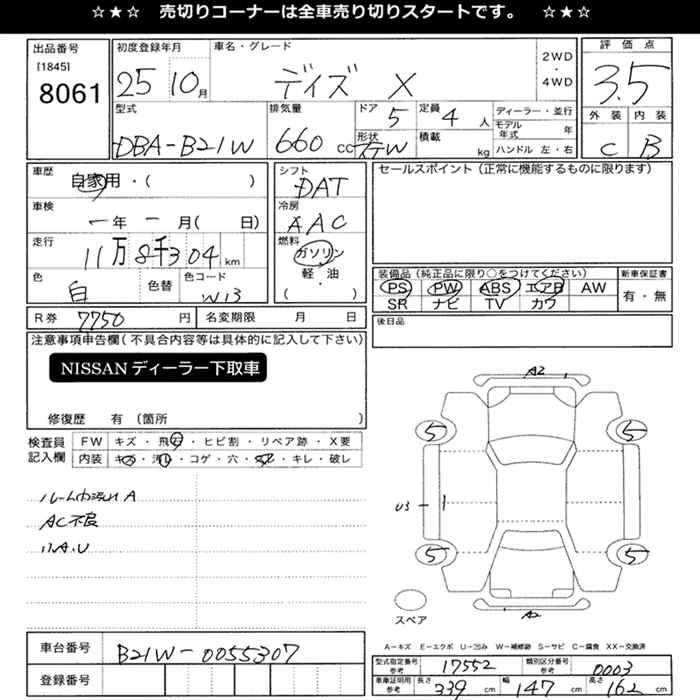 ☆★☆ 売切りコーナーは全車売り切りスタートです。 ☆★☆
出品番号 初度登録年月 車名・グレード 2WD・4WD 評価点
[1845]
8061 25 10月 デイズ X 3.5
型式 排気量 ドア 5 定員 4人 ディーラー・並行 外装 内装
DBA-B21W 660cc 形状 積載 kg モデル年式 年 C B
ハンドル 左・右
車歴 自家用・( )
シフト DAT
セールスポイント(正常に機能するものに限ります)
車検 ー年ー月( 日)
冷房 AAC
走行 11万8千304km
燃料 ガソリン・軽・油 ( )
色 白 色替 色コード W13
装備品(純正品に限り○をつけてください) 新車保証書
PS PW ABS エアB AW 有・無
SR ナビ TV カワ
R券 7750円 名変期限 月 日
後日品
注意事項申告欄(不具合内容等は具体的に記入して下さい)
NISSAN ディーラー下取車
修復歴 有 (箇所 )
検査員記入欄 FW キズ・飛石・ヒビ割・リペア跡・X要
内装 キズ・汚れ・コゲ・穴・・キレ・破レ
AC不良
小A.U
A2
5 5
U3
5 5
スペア
A2
A-キズ E-エクボ U-凹み W-補修跡 S-サビ C-腐食 XX-交換済
車台番号 B21W-0055307
型式指定番号 参考 17552 類別区分番号 参考 0003
登録番号
車庫証明用 参考 長さ 339cm 幅 147cm 高さ 162cm